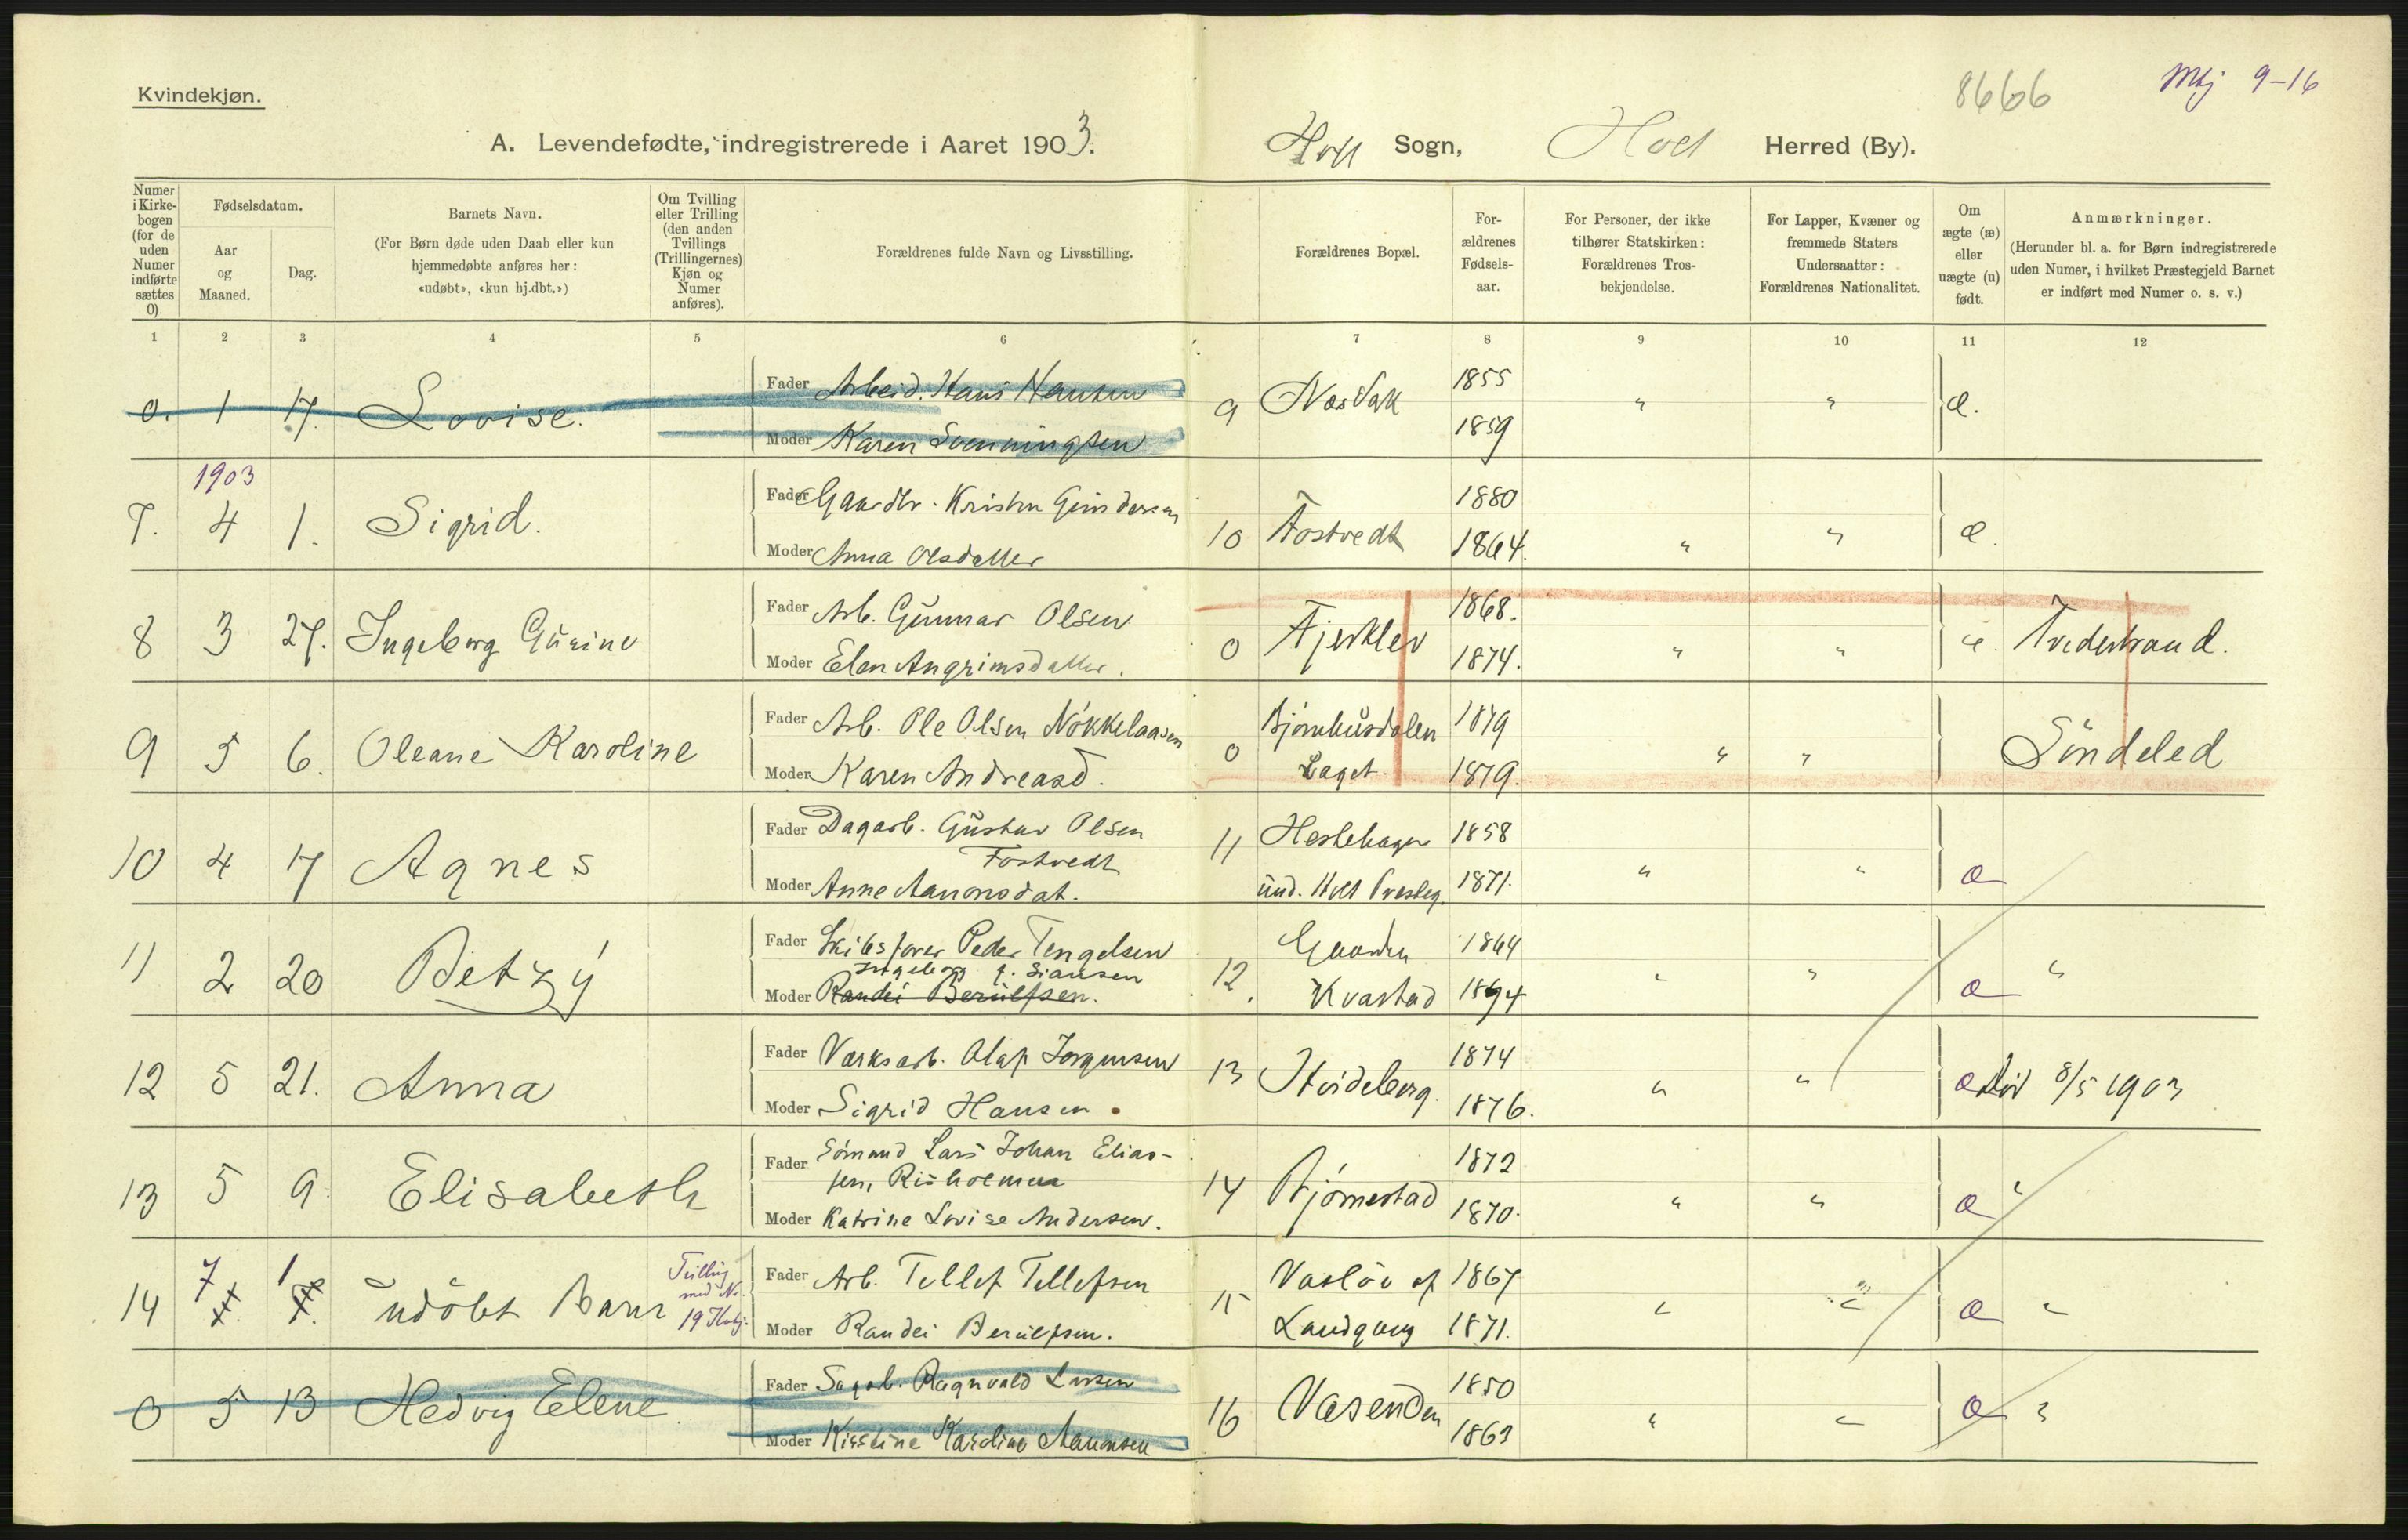 8666 Mkj 9-16
Kvindekjøn.
A. Levendefødte, indregistrerede i Aaret 1903. Holt Sogn, Holt Herred (By).
Numer i Kirke-bogen (for de uden Numer indførte sættes 0).
Fødselsdatum.
Aar og Maaned.
Dag.
Barnets Navn.
(For Børn døde uden Daab eller kun hjemmedøbte anføres her: «udøbt», «kun hj.dbt.»)
Om Tvilling eller Trilling (den anden Tvillings (Trillingernes) Kjøn og Numer anføres).
Forældrenes fulde Navn og Livsstilling.
Forældrenes Bopæl.
For-ældrenes Fødsels-aar.
For Personer, der ikke tilhører Statskirken: Forældrenes Tros-bekjendelse.
For Lapper, Kvæner og fremmede Staters Undersaatter: Forældrenes Nationalitet.
Om ægte (æ) eller uægte (u) født.
Anmærkninger.
(Herunder bl. a. for Børn indregistrerede uden Numer, i hvilket Præstegjeld Barnet er indført med Numer o. s. v.)
1 2 3 4 5 6 7 8 9 10 11 12
0. 1 17. Lovise. Fader Arbeid. Hans Hansen 9 Næs Vrk 1855 " " æ.
Moder Karen Svenningsen 1859
1903
7. 4 1. Sigrid. Fader Gaardbr. Kristen 10 Fostvedt 1880
Moder Anna Olsdatter 1864. " " æ.
8 3 27. Ingeborg Gurine Fader Arb. Gunnar Olsen 0 Fjerklev 1868.
Moder Elen Angrimsdatter. 1874. " " æ. Tvedestrand.
9 5 6. Oleane Karoline Fader Arb. Ole Olsen Nökkelaasen 0 Björnhusdalen 1879
Moder Karen Andreasd. Laget 1879. " " Söndeled
10 4 17 Agnes Fader Dagarb. Gustav Olsen 11 Hestehagen 1858
Fostvedt
Moder Anne Aanonsdat. und. Holt Presteg. 1871. " " æ
11 2 20 Betzy Fader Skibsförer Peder Tengelsen 12. Gaarden 1864
Ingeborg
Moder Randei Berulfsen. Kvastad 1894 " " æ "
12 5 21. Anna Fader Værksarb. Olaf Jorgensen 13 Hvideberg. 1874
Moder Sigrid Hansen. 1876. " " æ Död 8/5 1903
13 5 9. Elisabeth Fader Sömand Lars Johan Elias-
sen, Risholmen 14 Björnestad 1872
Moder Katrine Lovise Andersen. 1870. " " æ "
14 7 1 udöbt Barn Tvilling med No. 19 Fader Arb. Tellef Tellefsen 15 Vaslöv af 1867
Moder Randei Berulfsen. Landgang 1871. " " æ "
0 5 13 Hedvig Elene. Fader Sagarb. Ragnvald Larsen 16 Væsenden 1850
Moder Kirstine Karoline Aanonsen 1863 " " æ "